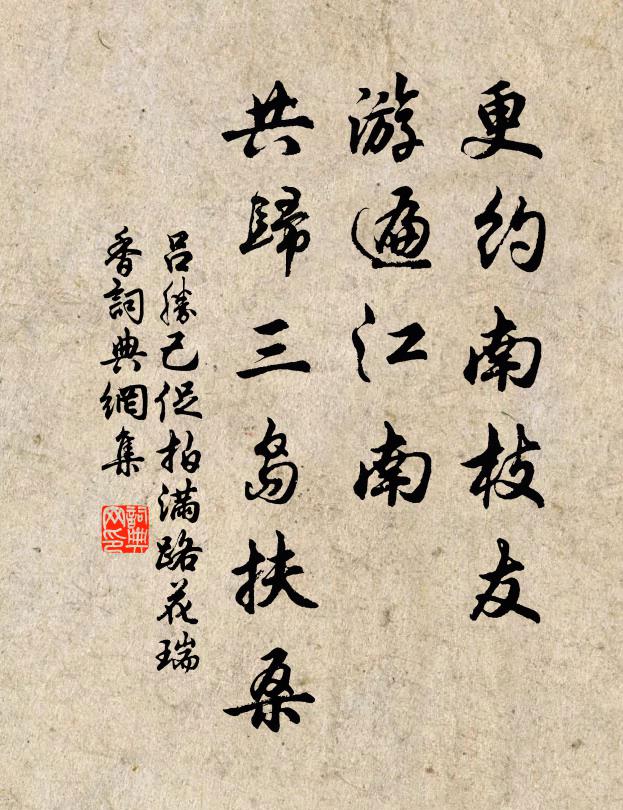 更约南枝友
游遍江南
共歸三岛扶桑
吕勝己促拍满路花瑞
香詞典網集
詞典网印